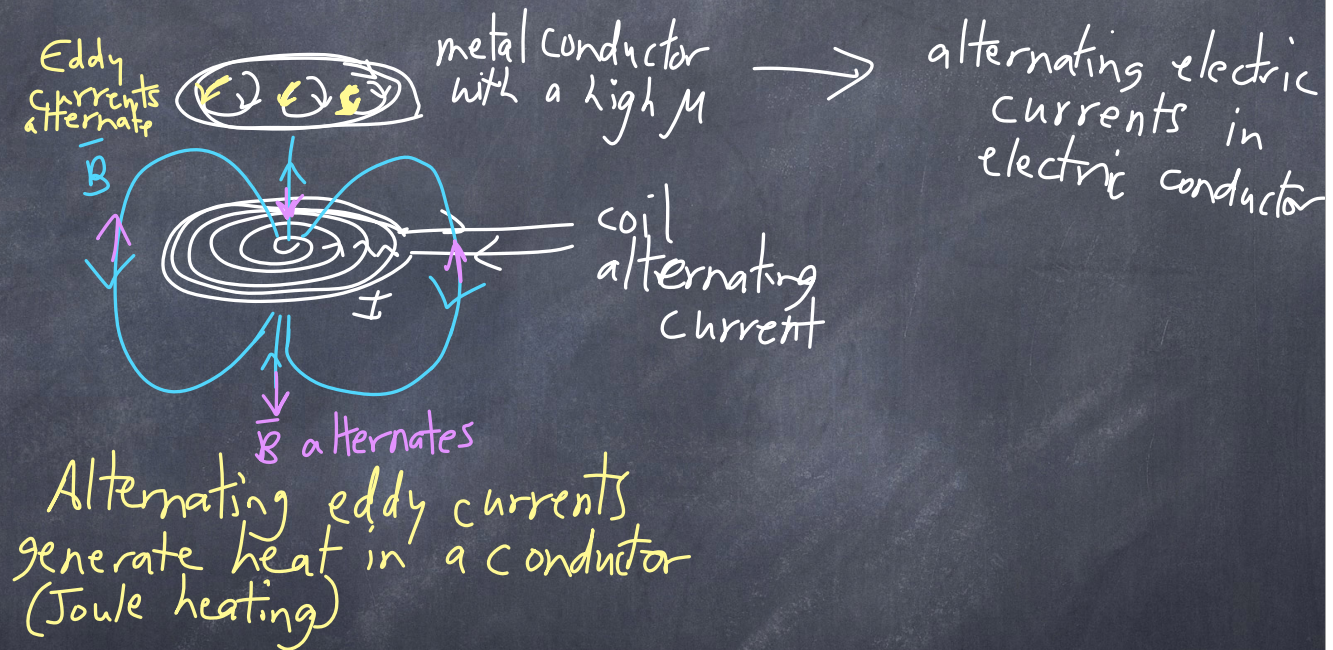 Eddy
currents
alternate
metal conductor
with a high μ
alternating electric
currents in
electric conductor
B̅
coil
alternating
current
I
B̅ alternates
Alternating eddy currents
generate heat in a conductor
(Joule heating)